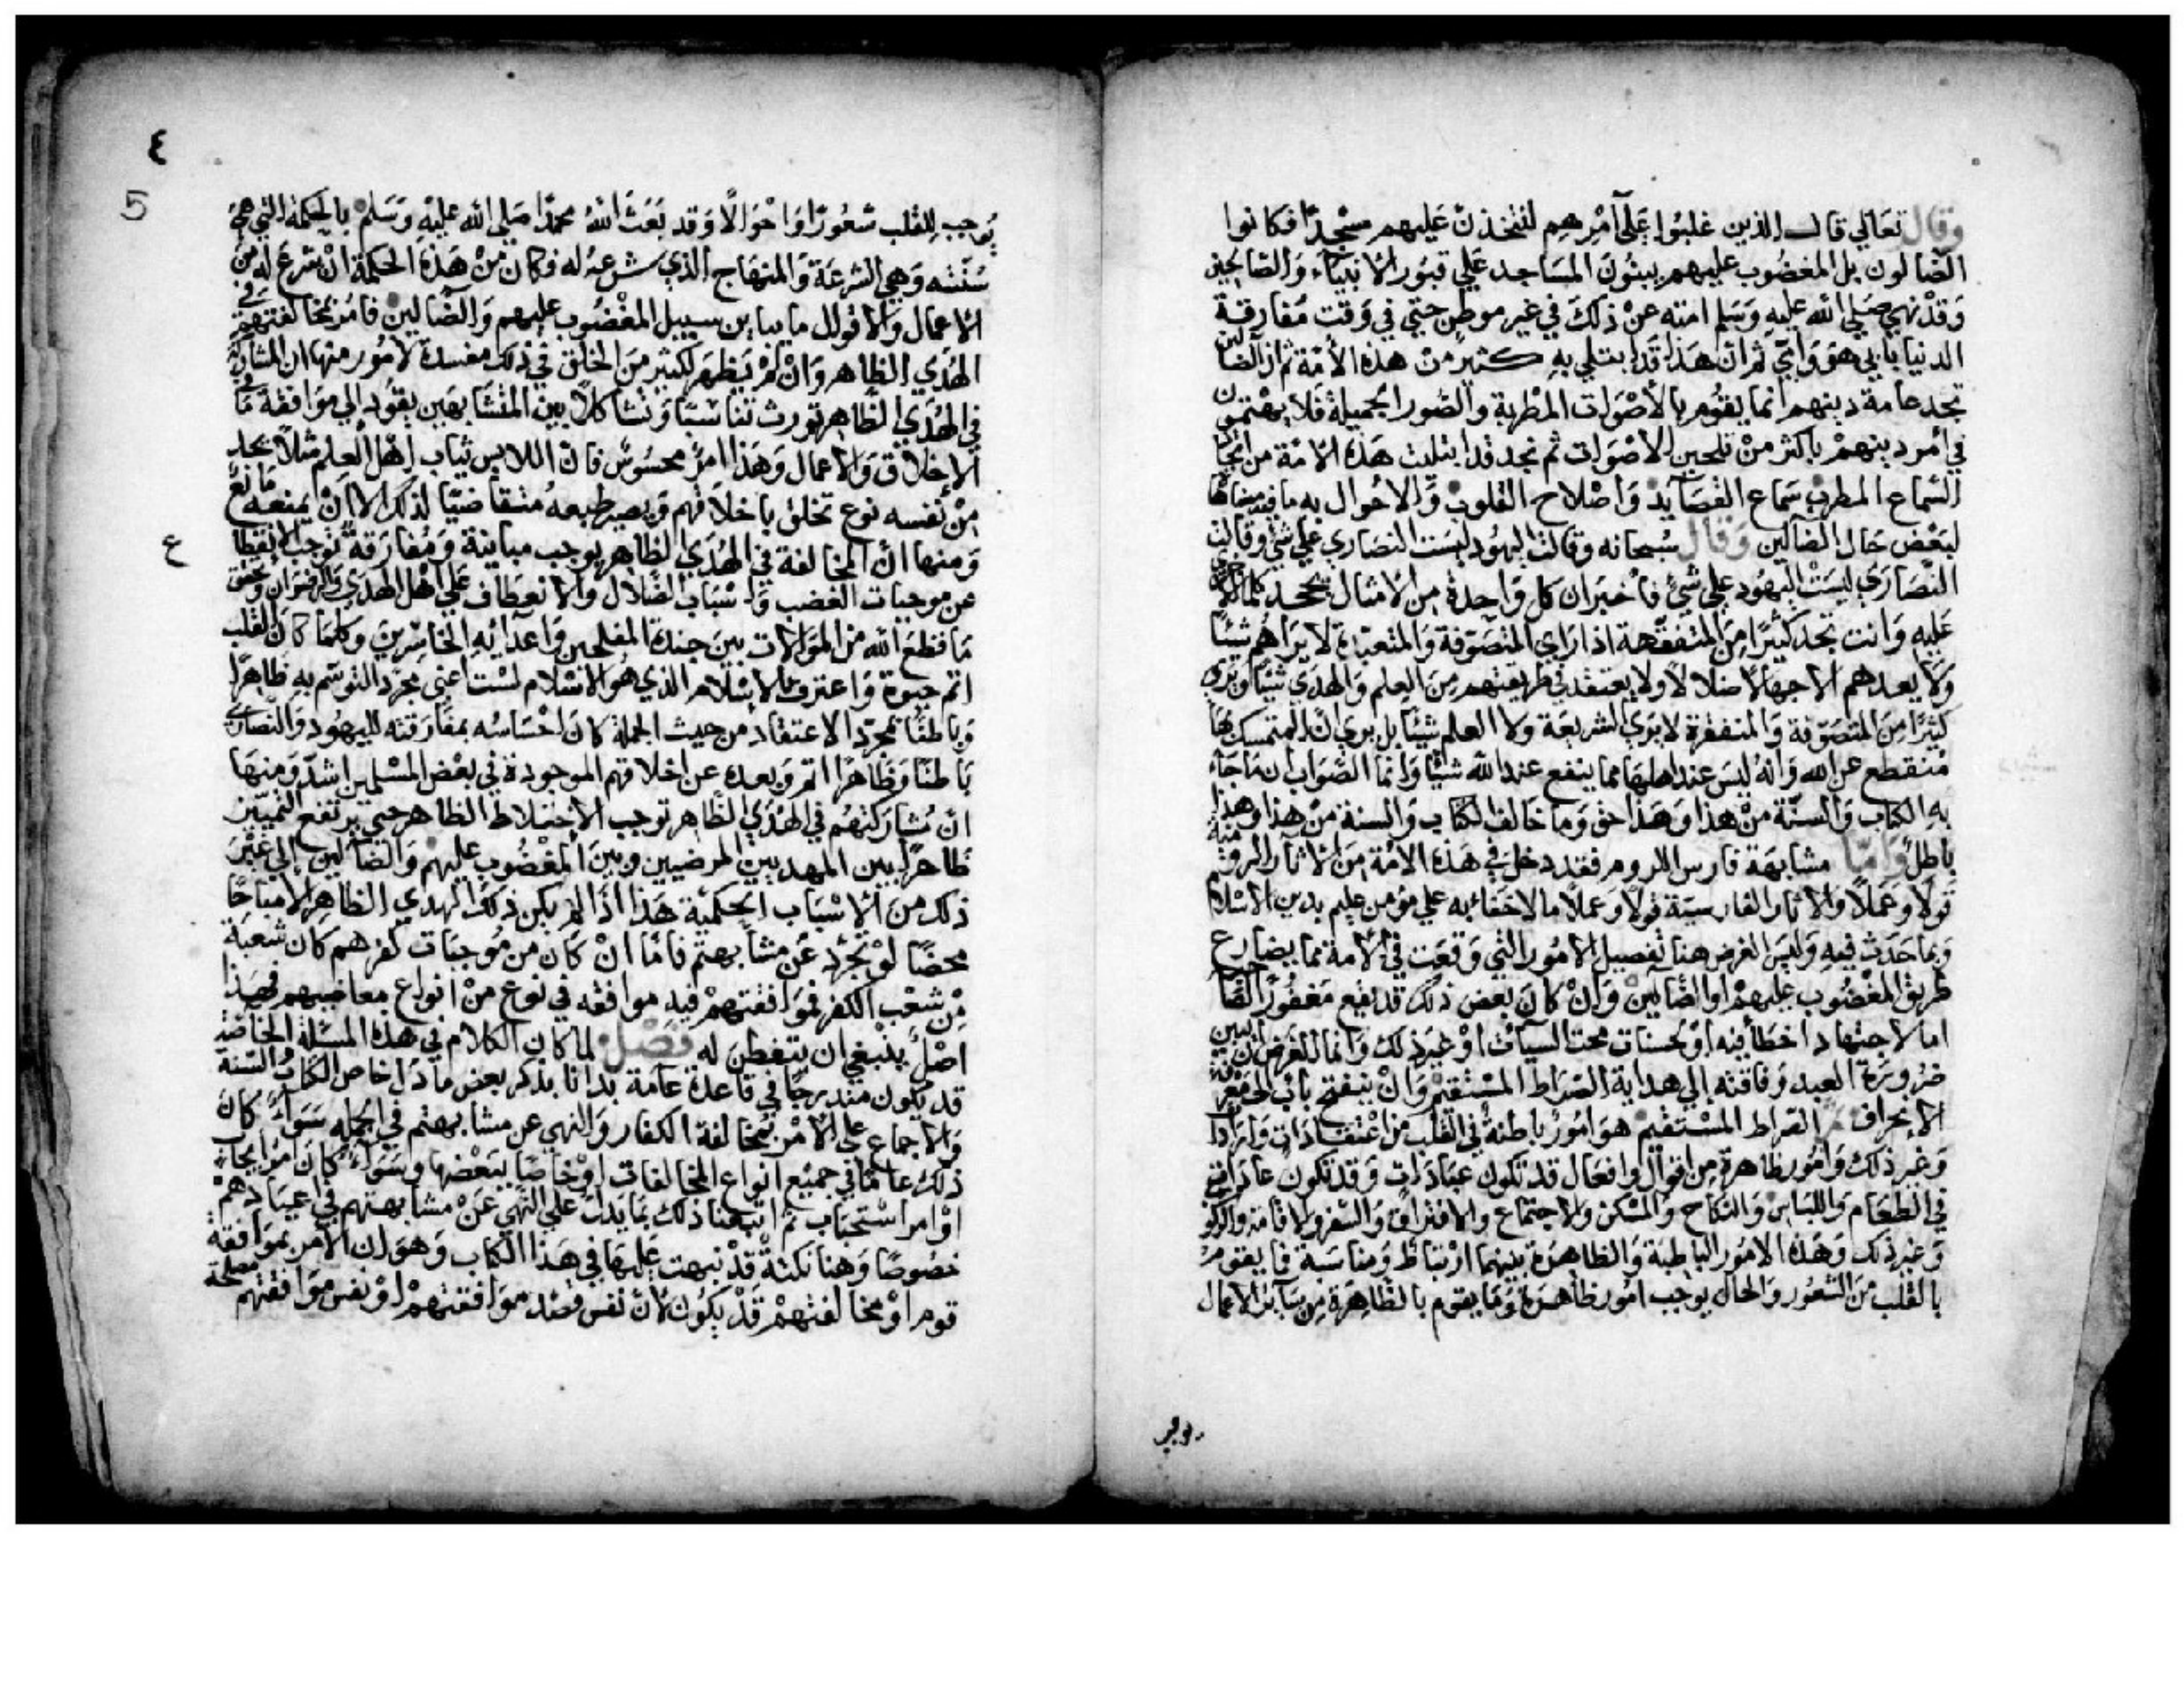 وقال تعالي قال الذين غلبوا علي أمرهم لنتخذن عليهم مسجدا فكانوا
الضالون بل المغضوب عليهم يبنون المساجد علي قبور الانبياء والصالحين
وقد نهي صلي الله عليه وسلم امته عن ذلك في غير موطن حتي في وقت مفارقة
الدنيا بابي هو وامي ثم ان هذا قد ابتلي به كثير من هذه الأمة ثم ان الضالين
تجد عامة دينهم انما يقوم بالأصوات المطربة والصور الجميلة فلا يهتمون
في أمر دينهم باكثر من تلحين الاصوات ثم نجد قد ابتليت هذه الامة من اتخاذ
السماع المطرب سماع القصايد واصلاح القلوب والاحوال به ما فيه مضاهاة
لبعض حال الضالين وقال سبحانه وقالت اليهود ليست النصاري علي شي وقالت
النصاري ليست اليهود علي شي فأخبر ان كل واحدة من الامتان تجحد كلما الاخري
عليه وانت تجد كثيرا من المتفقهة اذا راي المتصوفة والمتعبدة لا يراهم شيئا
ولا يعدهم الا جهالا ضلالا ولا يعتقد في طريقتهم من العلم والهدي شيئا وتري
كثيرا من المتصوفة والمتفقرة لا يري الشريعة ولا العلم شيئا بل يري ان المتمسك بها
منقطع عن الله وانه ليس عند اهلها مما ينفع عند الله شيئا وانما الصواب ان ما جاء
به الكتاب والسنة من هذا وهذا حق وما خالف الكتاب والسنة من هذا وهذا
باطل واما مشابهة فارس والروم فقد دخل في هذه الامة من الاثار الرومية
قولا وعملا والاثار الفارسية قولا وعملا ما لا خفاء به علي مؤمن عليم بدين الاسلام
وبما حدث فيه وليس الغرض هنا تفصيل الامور التي وقعت في الامة مما يضارع
طريق المغضوب عليهم او الضالين وان كان بعض ذلك قد يقع مغفورا لصا
اما لاجتهاد اخطأ فيه او لحسنات محت السيآت او غير ذلك وانما الغرض ان نبين
ضرورة العبد وفاقته الي هداية الصراط المستقيم وان ينفتح باب الي معرفة
الانحراف ثم الصراط المستقيم هو امور باطنة في القلب من اعتقادات وارادات
وغير ذلك وامور ظاهرة من اقوال وافعال قد تكون عبادات وقد تكون عادات
في الطعام واللباس والنكاح والمسكن والاجتماع والافتراق والسفر والاقامة والركوب
وغير ذلك وهذه الامور الباطنة والظاهرة بينهما ارتباط ومناسبة فما يقوم
بالقلب من الشعور والحال يوجب امور ظاهرة وما يقوم بالظاهرة من سائر الاعمال
يوجب
٤
5
يوجب للقلب شعورا واحوالا وقد بعث الله محمدا صلي الله عليه وسلم بالحكمة التي هي
سنته وهي الشرعة والمنهاج الذي شرعه له فكان من هذه الحكمة ان شرع له من
الاعمال والاقوال ما يباين سبيل المغضوب عليهم والضالين فامر بمخالفتهم في
الهدي الظاهر وان لم يظهر لكثير من الخلق في ذلك مفسدة لامور منها ان المشاركة
في الهدي الظاهر تورث تناسبا وتشاكلا بين المتشابهين يقود الي موافقة ما في
الاخلاق والاعمال وهذا امر محسوس فان اللابس ثياب اهل العلم مثلا يجد
من نفسه نوع تخلق باخلاقهم ويصير طبعه متقاضيا لذلك الا ان يمنعه مانع
ومنها ان المخالفة في الهدي الظاهر يوجب مباينة ومفارقة توجب الانقطاع
عن موجبات الغضب واسباب الضلال والانعطاف علي اهل الهدي والرضوان وتحقق
ما قطع الله من الموالات بين جنده المفلحين واعدايه الخاسرين وكلما كان القلب
اتم حيوة واعترف بالاسلام الذي هو الاسلام لست اعني مجرد التوسم به ظاهرا
وباطنا مجرد الاعتقاد من حيث الجملة كان احساسه بمفارقته لليهود والنصاري
باطنا وظاهرا اتم وبعده عن اخلاقهم الموجودة في بعض المسلمين اشد ومنها
ان مشاركتهم في الهدي الظاهر توجب الاختلاط الظاهر حتي يرتفع التمييز
ظاهرا بين المهديين المرضيين وبين المغضوب عليهم والضالين الي غير
ذلك من الاسباب الحكمية هذا اذا لم يكن ذلك الهدي الظاهر الا مباحا
محضا لو تجرد عن مشابهتهم فاما ان كان من موجبات كفرهم كان شعبة
من شعب الكفر فموافقتهم فيه موافقه في نوع من انواع معاصيهم فهذا
اصل ينبغي ان يتفطن له فصل لما كان الكلام في هذه المسئلة الخاصة
قد يكون مندرجا في قاعدة عامة بدانا بذكر بعض ما دل خاص الكتاب والسنة
والاجماع علي الامر بمخالفة الكفار والنهي عن مشابهتهم في الجمله سواء كان
ذلك عاما في جميع انواع المخالفات او خاصا ببعضها وسواء كان امر ايجاب
او امر استحباب ثم اتبعنا ذلك بما يدل علي النهي عن مشابهتهم في اعيادهم
خصوصا وهنا نكتة قد نبهت عليها في هذا الكتاب وهو ان الامر بموافقة
قوم او مخالفتهم قد يكون لان نفس قصد موافقتهم او نفس موافقتهم مصلحة
ع